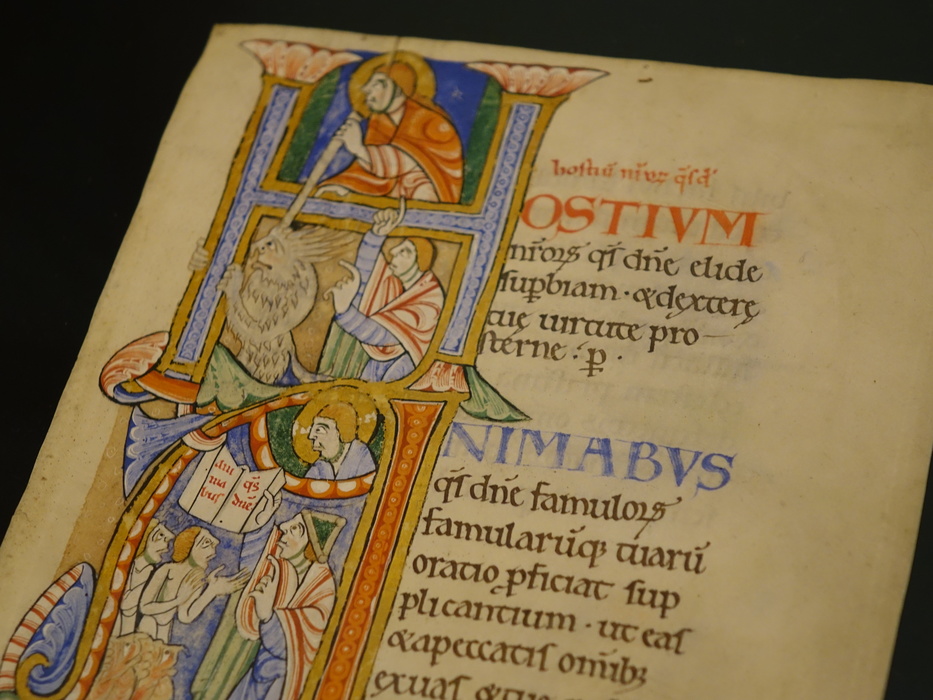 hostiū nr̄oꝝ q̄s d̄
HOSTIVM
nr̄oꝝ q̄s dn̄e elide
supbiam · &dexterę
tuę uirtute pro–
sterne · p̄ ·
ANIMABVS
q̄s dn̄e famuloꝝ
famularūq; tuarū
oratio ꝓficiat sup
plicantium · ut eas
&apeccatis om̄ib;
exuas &tuę
ani
ma
bus
q̄s
dn̄e